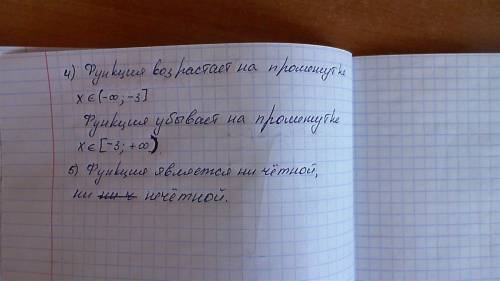 4) Функция возрастает на промежутке
x∈(-∞; -3]
Функция убывает на промежутке
x∈[-3; +∞)
5) Функция является ни чётной,
ни нечётной.